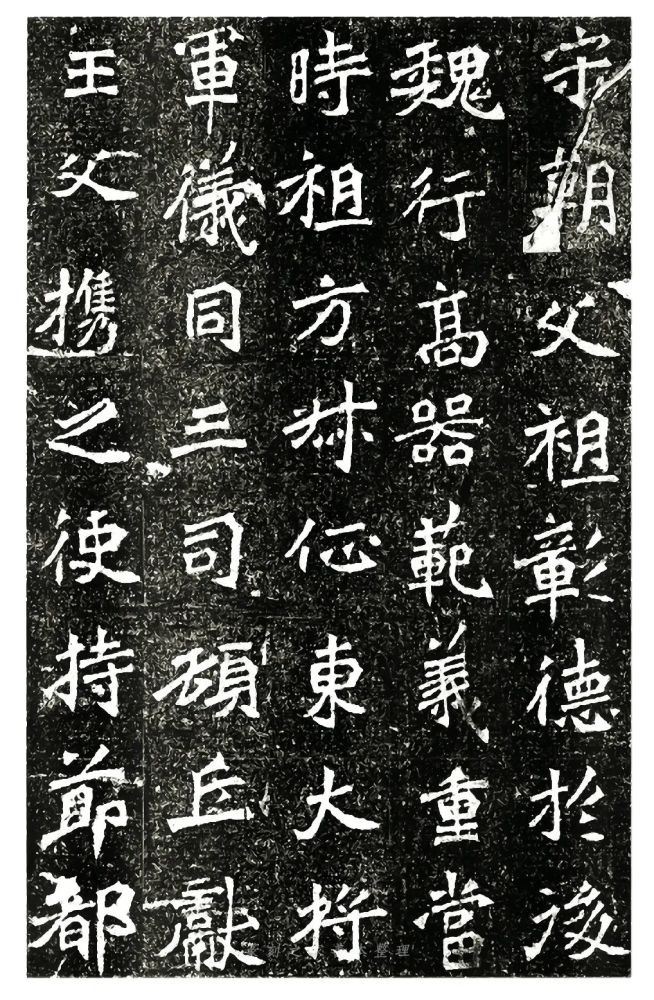 守朝父祖彰德於後
魏行高器範義重當
時祖方叔征東大將
軍儀同三司頓丘獻
王父攜之使持節都
整理